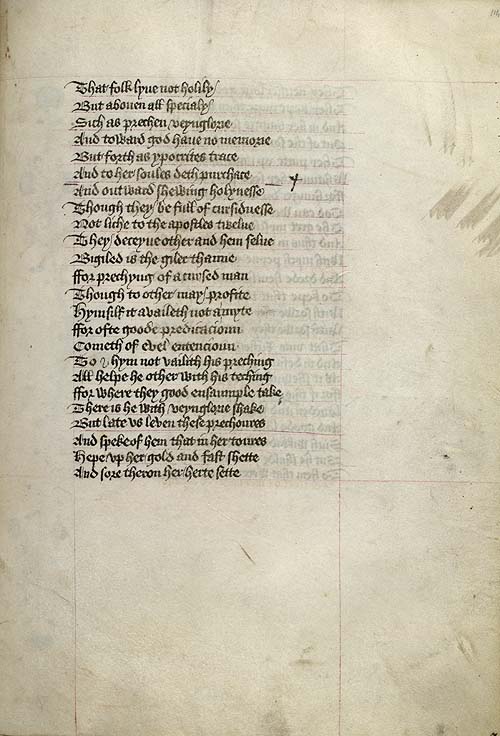 That folk lyue not holily
But abouen all specialy
Sich as prechen veynglorie
And toward god haue no memorie
But forth as ypocrites trace
And to her soules deth purchace
And outward shewing holynesse
Though they be full of cursidnesse
Not liche to the apostles twelue
They deceyue other and hem selue
Bigiled is the giler thanne
ffor prechyng of a cursed man
Though to other may profite
Hymsilf it availeth not a myte
ffor ofte goode predicacioun
Cometh of evel entencioun
To hym not vailith his preching
All helpe he other with his teching
ffor where they good ensaumple take
There is he with veynglorie shake
But late vs leven these prechoures
And speke of hem that in her toures
Hepe vp her gold and fast shette
And sore theron her herte sette